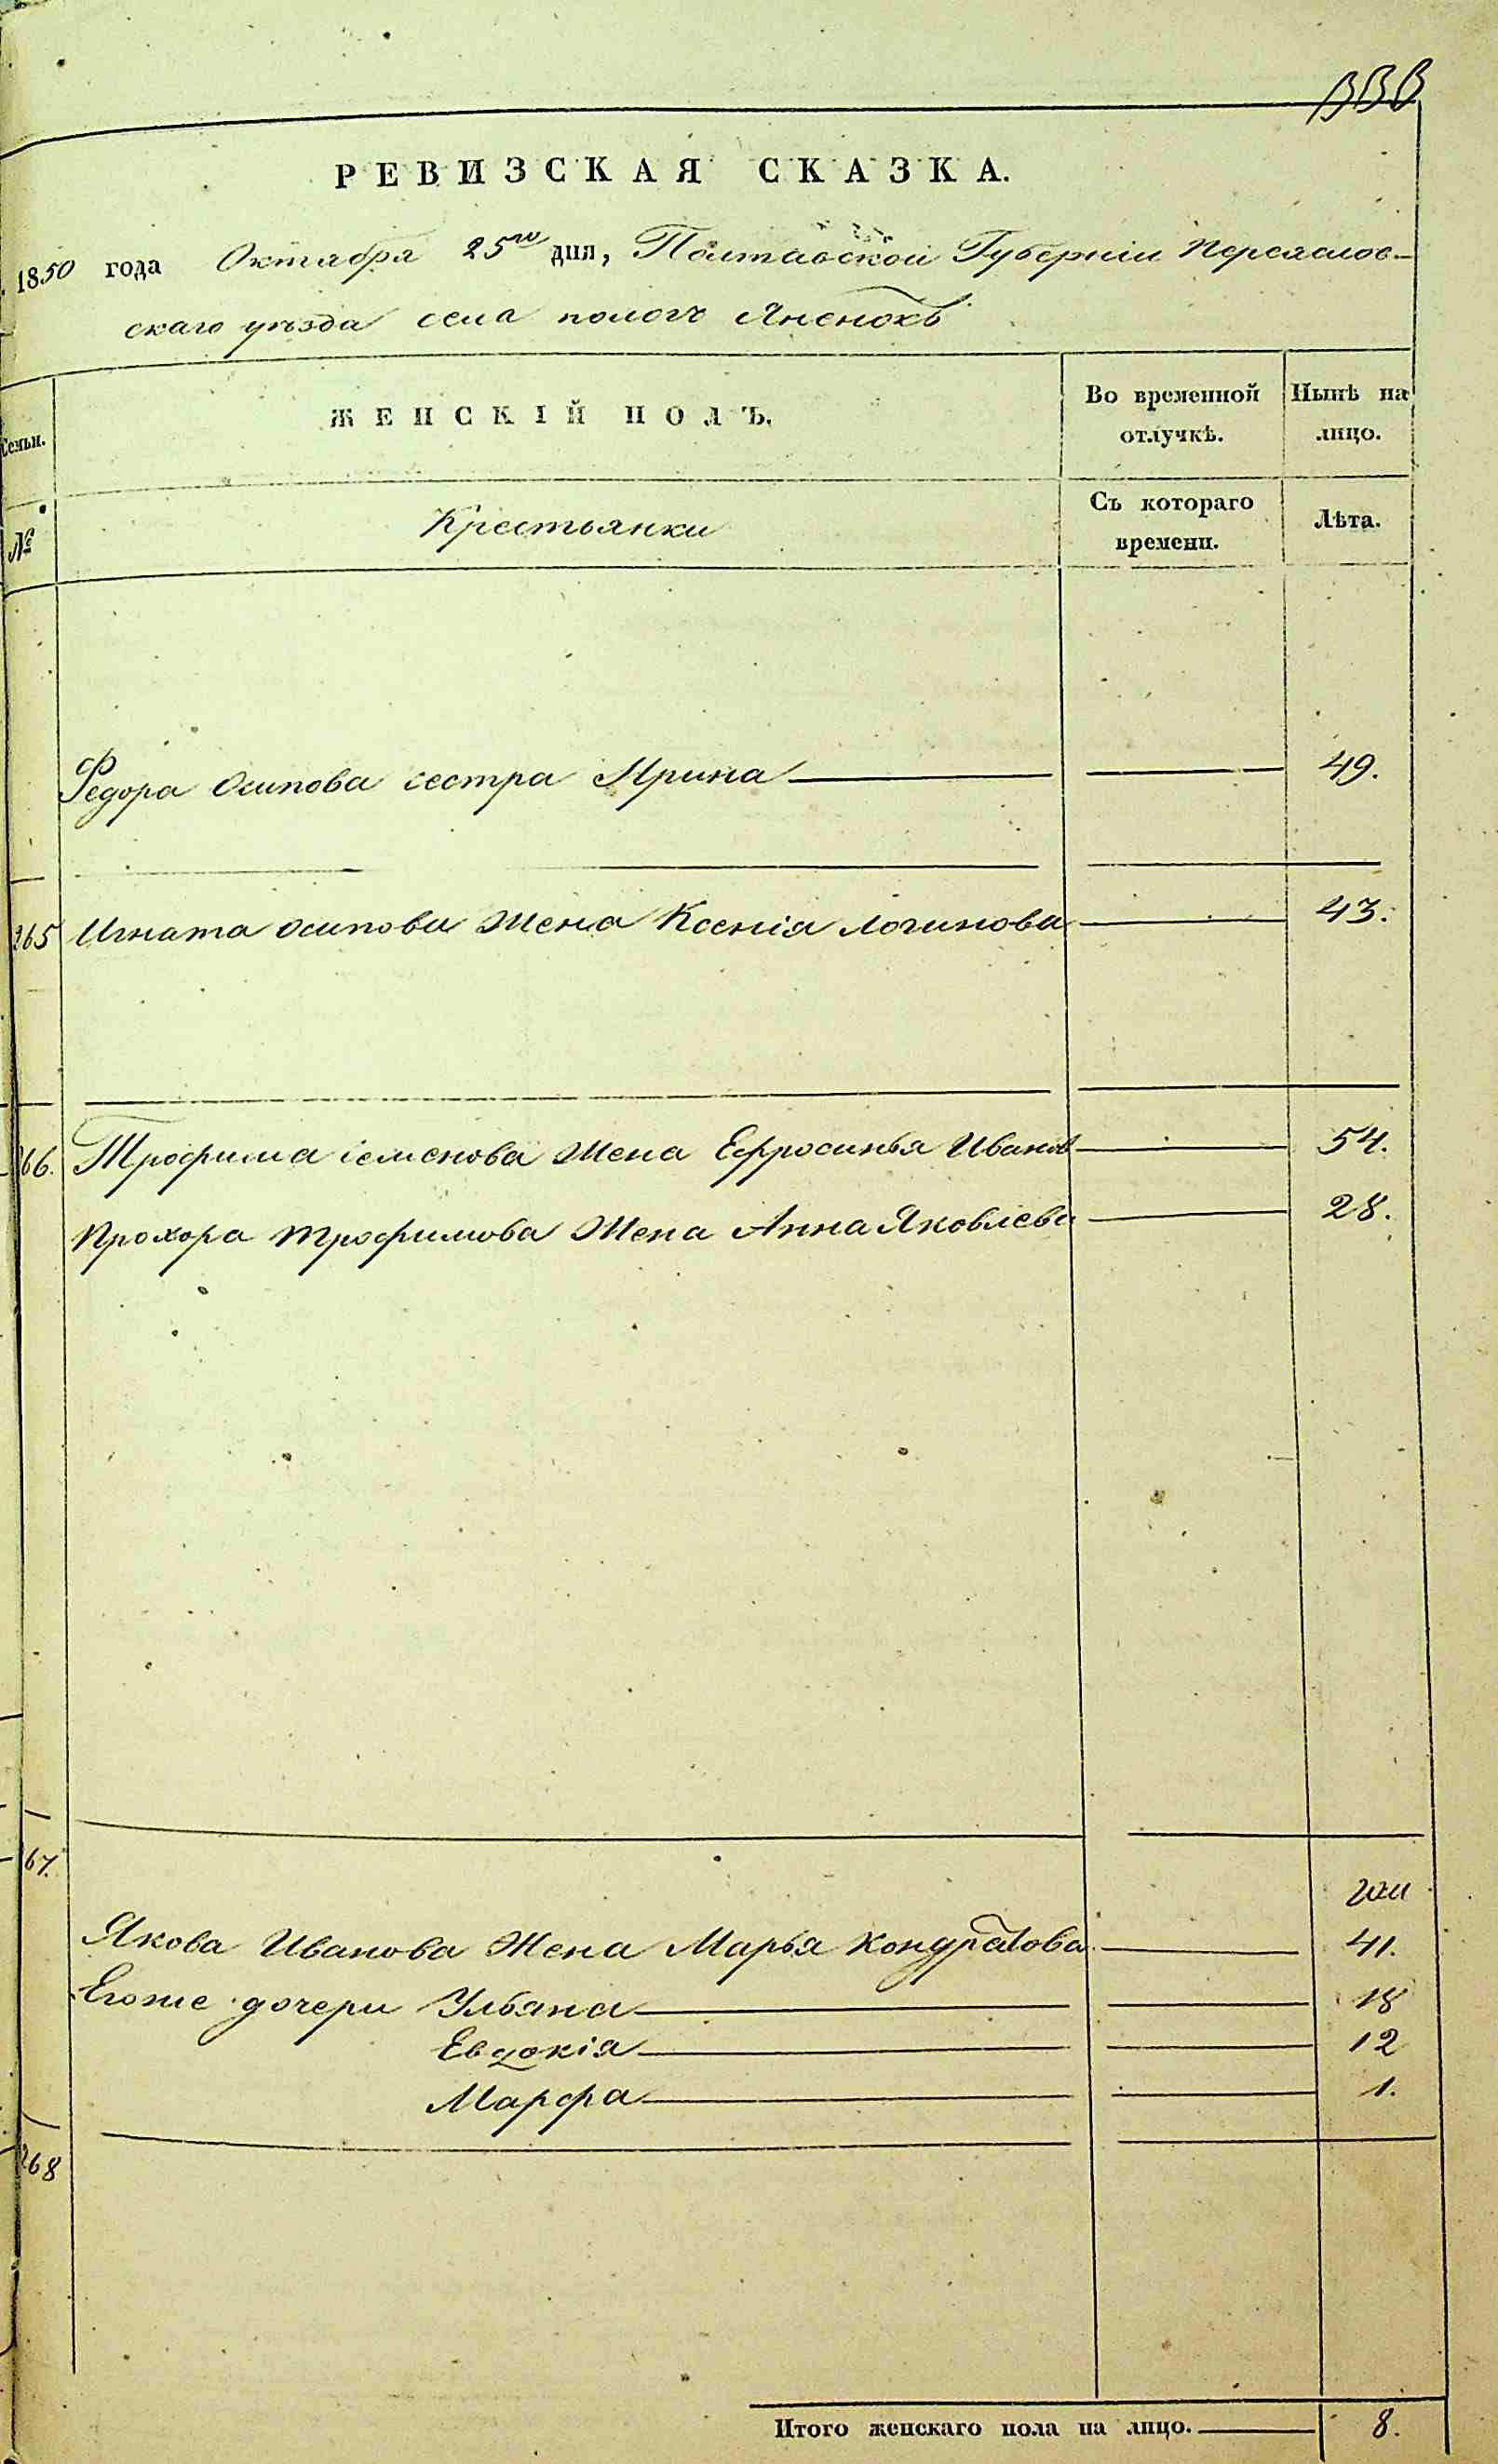 РЕВИЗСКАЯ СКАЗКА.
1850 года Октября 25го дня, Полтавской Губерніи Переяслов-
скаго уѣзда села пологъ Яненокъ
Семьи. ЖЕНСКІЙ ПОЛЪ. Во временной отлучкѣ. Нынѣ на лицо.
№ Крестьянки Съ котораго времени. Лѣта.
Федора Осипова сестра Ирина 49.
265 Игната Осипова Жена Ксенія Логинова 43.
266. Трофима Семенова Жена Ефросинья Иванов 54.
Прохора Трофимова Жена Анна Яковлева 28.
67.
Якова Иванова Жена Марья Кондратова 41.
Егоже дочери Ульяна 18
Евдокія 12
Марфа 1.
268
Итого женскаго пола на лицо. 8.